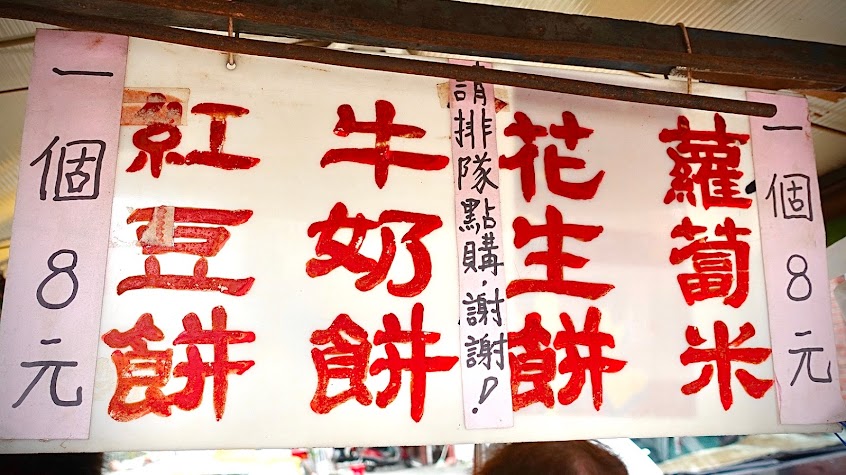 一個8元
蘿蔔米
花生餅
請排隊點購,謝謝!
牛奶餅
紅豆餅
一個8元